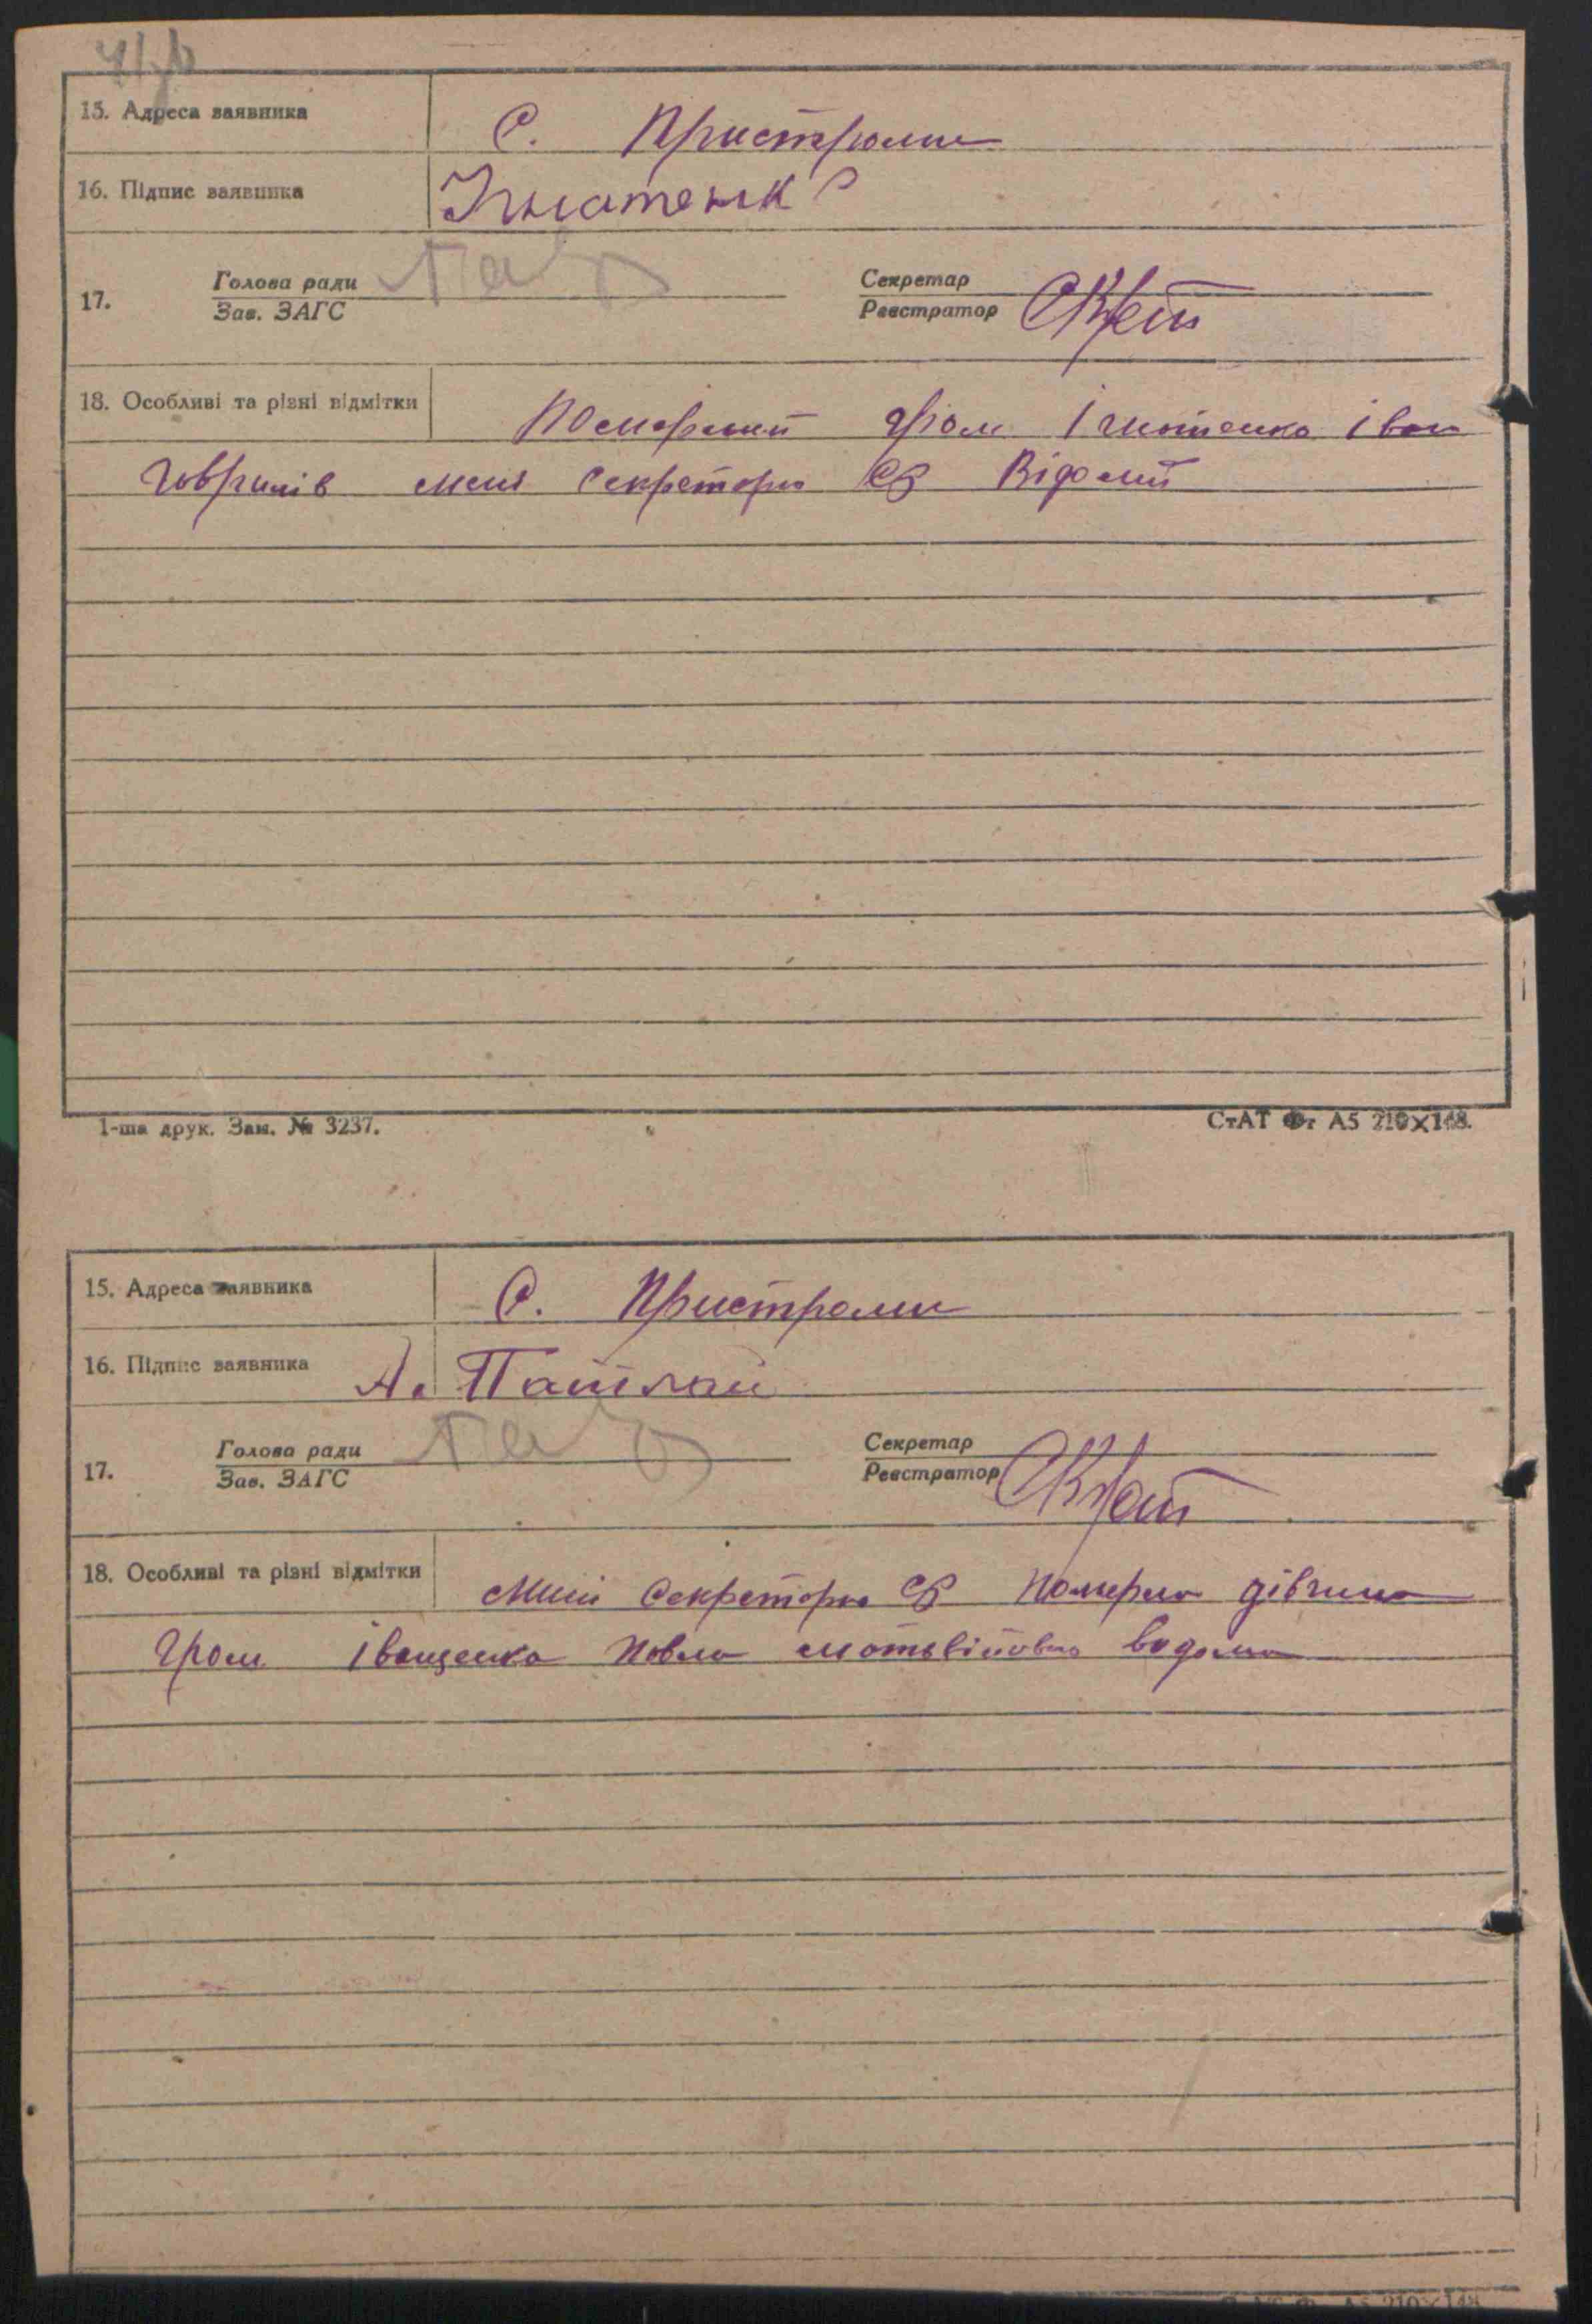 15. Адреса заявника С. Пристроми
16. Підпис заявника Ігнатенк
17. Голова ради Секретар
Зав. ЗАГС Реєстратор
18. Особливі та різні відмітки Померший гром Ігнатенко Іван
Говрилів мені секреторю СР Відомий
1-ша друк. Зам. № 3237. СтАТ Фт А5 210×148.
15. Адреса заявника С. Пристроми
16. Підпис заявника А. Патлай
17. Голова ради Секретар
Зав. ЗАГС Реєстратор
18. Особливі та різні відмітки Мині Секреторю СР померла дівчина
гром Іващенка Повла мотвійовно водома
А5 210×148